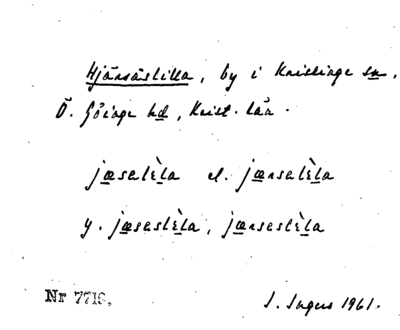 Hjärsåslilla, by i Knislinge sn,
Ö. Göinge hd, Krist. län.
jæsalèla el. jærsalèla
y. jæsaslèla, jærsaslèla
Nr 7718.
I. Ingers 1961.